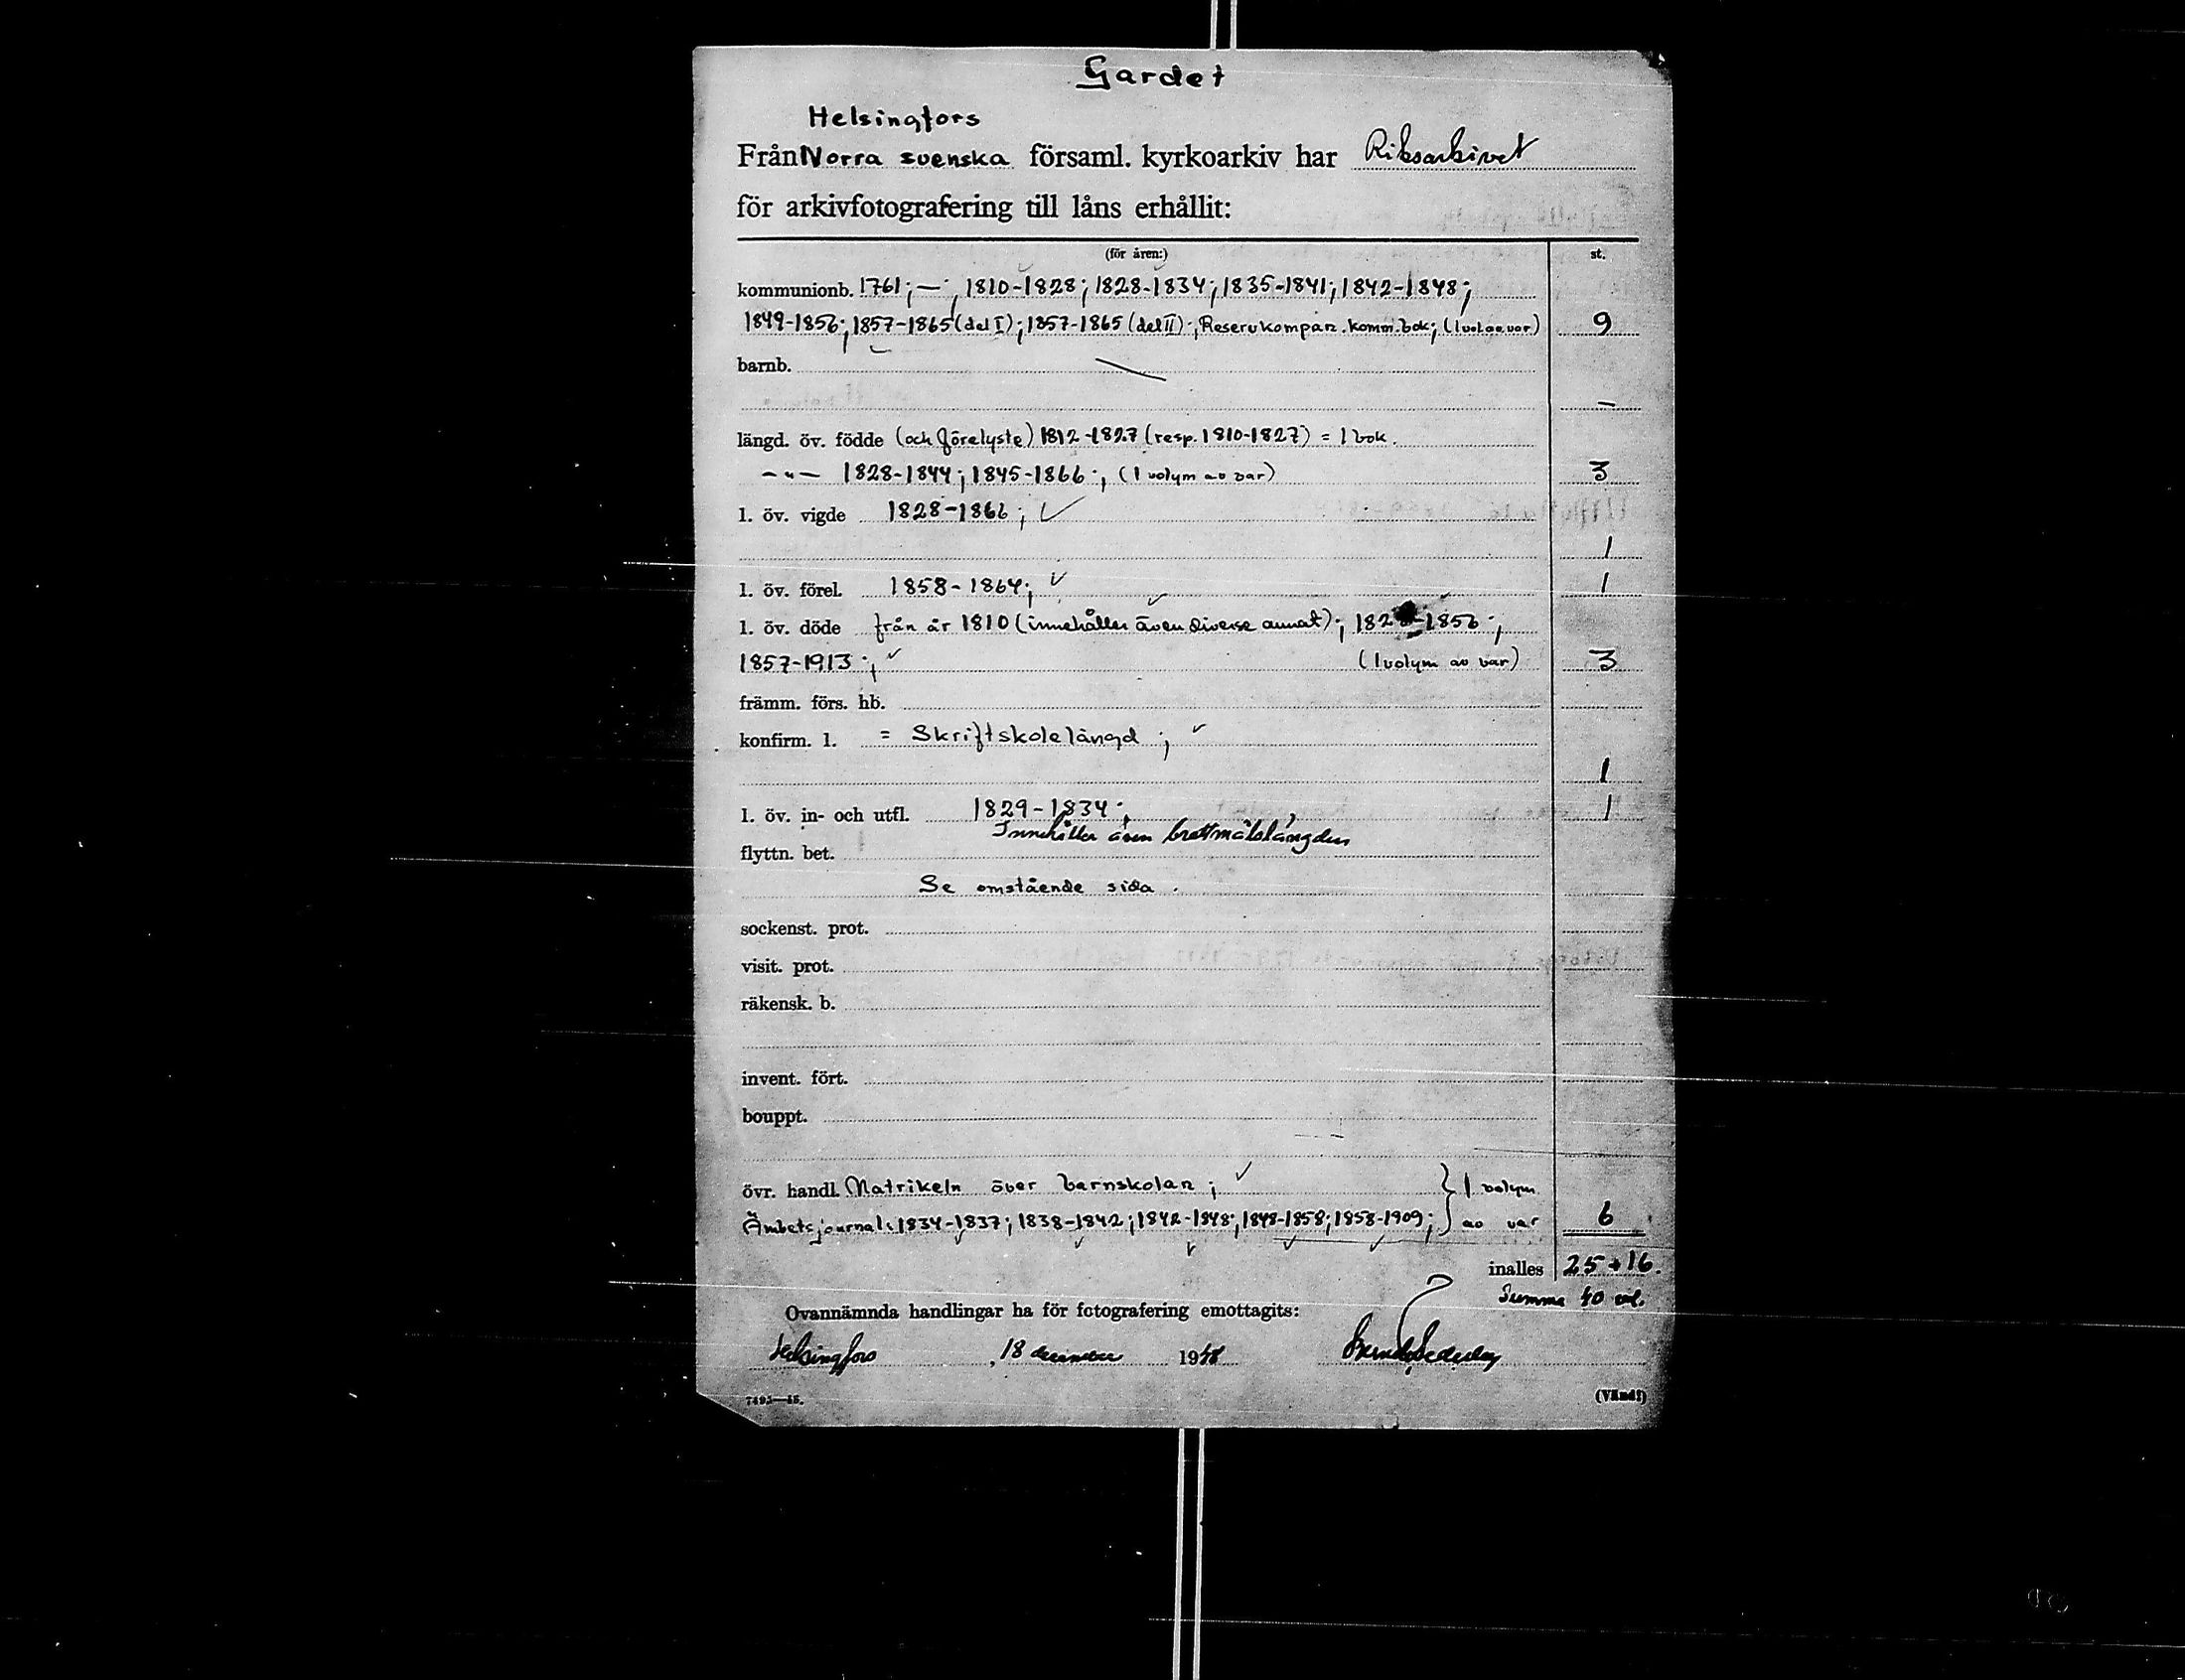 Gardet
Helsingfors
Från Norra svenska församl. kyrkoarkiv har Riksarkivet
för arkivfotografering till låns erhållit:
(för åren:) st.
kommunionb. 1761; —; 1810-1828; 1828-1834; 1835-1841; 1842-1848;
1849-1856; 1857-1865 (del I); 1857-1865 (del II); Reservkompan. komm.bok; (1 vol. av var) 9
barnb. —
—
längd. öv. födde (och förelyste) 1812-1827 (resp. 1810-1827) = 1 bok.
-"- 1828-1844; 1845-1866; (1 volym av var) 3
l. öv. vigde 1828-1866;
1
l. öv. förel. 1858-1864; 1
l. öv. döde från år 1810 (innehåller även diverse annat); 182 -1856;
1857-1913; (1 volym av var) 3
främm. förs. hb.
konfirm. l. = Skriftskolelängd;
1
l. öv. in- och utfl. 1829-1834; 1
Innehåller även brottmålslängden
flyttn. bet.
Se omstående sida.
sockenst. prot.
visit. prot.
räkensk. b.
invent. fört.
bouppt.
övr. handl. Matrikeln över barnskolan; } 1 volym
Ämbetsjournal: 1834-1837; 1838-1842; 1842-1848; 1848-1858; 1858-1909; av var 6
inalles 25+16.
Summa 40 vol.
Ovannämnda handlingar ha för fotografering emottagits:
Helsingfors, 18 december 1948
(Vänd!)